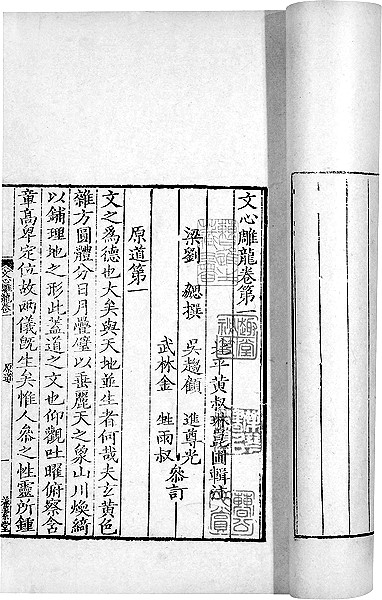 文心雕龍卷第一
平黃叔琳崑圃輯注
梁劉 勰撰 吳趨顧 進尊光
武林金 甡雨叔 叅訂
原道第一
文之爲德也大矣與天地並生者何哉夫玄黃色
雜方圓體分日月疊璧以垂麗天之象山川煥綺
以鋪理地之形此蓋道之文也仰觀吐曜俯察含
章高卑定位故兩儀旣生矣惟人叅之性靈所鍾
文心雕龍卷一 原道 一